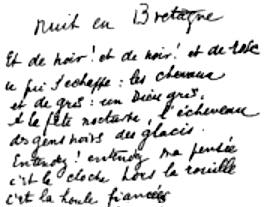 Nuit en Bretagne
Et de noir! et de noir! et de rose
ce qui s'échappe: les chevaux
et de gris: un Dieu gris,
A la fête nocturne, l'écheveau
des gens noirs des glacis.
Entendez! entendez ma pensée
c'est la cloche hors la rouille
c'est la houle fiancée